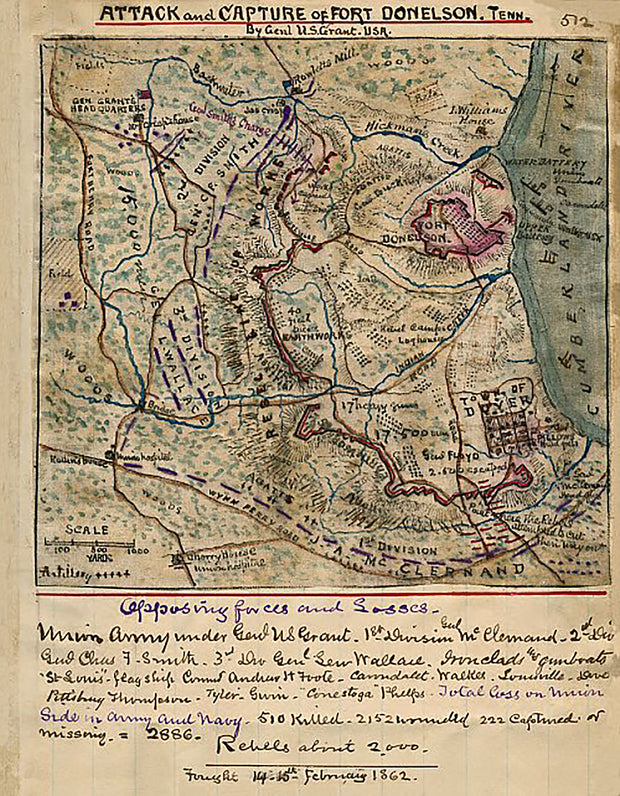 ATTACK and CAPTURE of FORT DONELSON. TENN.
512
By Genl U.S. Grant. USA.
Fields
Backwater
Rowletts Mill.
WOODS
GEN GRANTS
HEADQUARTERS
Genl Smith's Charge
J. Williams
House
Hickman Creek
WATER BATTERY
CUMBERLAND RIVER
WOODS
15000
2nd DIVISION
GEN C.F. SMITH
ABATIS
FORT
DONELSON.
Field
3d DIVISION
L. WALLACE
LINE OF
WORKS
REBEL
EARTHWORKS
Rebel Camps
Log houses
INDIAN
CREEK
WOODS
Bridge
TOWN OF
DOVER
17 heavy guns
17,500 men
Genl Floyd
2.600 escaped
Union hospital
ABATIS
WOODS
WYNN FERRY ROAD
1st DIVISION
J.A. Mc CLERNAND
SCALE
100 500 1000
YARDS
Cherry House
Union hospital
Artillery
Opposing forces and Losses-
Union Army under Genl US Grant - 1st Division Genl Mc Clernand - 2nd Div
Genl Chas F. Smith - 3d Div Genl Lew Wallace. Ironclads & Gunboats
"St Louis" flagship Comd Andrew H Foote - Carondelet - Walke - Louisville - Dove
Pittsburg Thompson - Tyler - Gwin - Conestoga Phelps - Total loss on Union
Side in Army and Navy - 510 Killed - 2152 wounded 222 Captured or
missing. = 2886.
Rebels about 2,000.
Fought 14-15th February 1862.